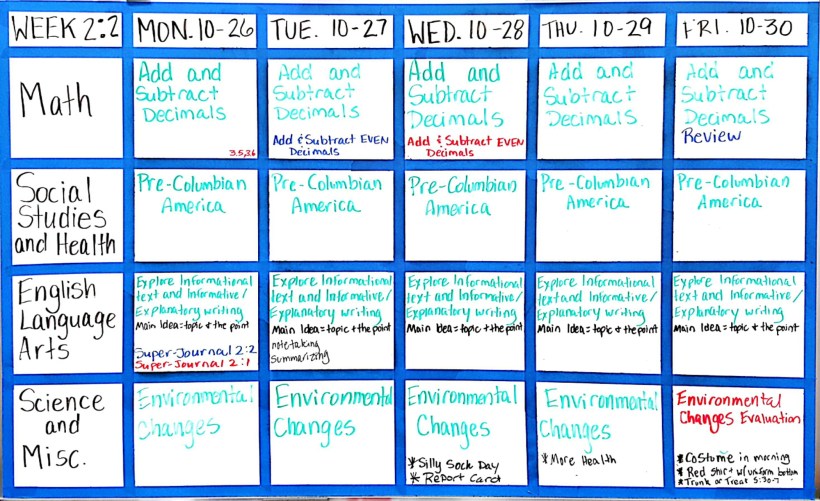 WEEK 2:2
MON. 10-26
TUE. 10-27
WED. 10-28
THU. 10-29
FRI. 10-30
Math
Add and
Subtract
Decimals
3.5,3.6
Add and
Subtract
Decimals
Add & Subtract EVEN
Decimals
Add and
Subtract
Decimals
Add & Subtract EVEN
Decimals
Add and
Subtract
Decimals
Add and
Subtract
Decimals
Review
Social
Studies
and Health
Pre-Columbian
America
Pre-Columbian
America
Pre-Columbian
America
Pre-Columbian
America
Pre-Columbian
America
English
Language
Arts
Explore Informational
text and Informative/
Explanatory writing
Main Idea=topic & the point
Super-Journal 2:2
Super-Journal 2:1
Explore Informational
text and Informative/
Explanatory writing
Main Idea=topic & the point
notetaking
Summarizing
Explore Informational
text and Informative/
Explanatory writing
Main Idea=topic & the point
Explore Informational
text and Informative/
Explanatory writing
Main Idea=topic & the point
Explore Informational
text and Informative/
Explanatory writing
Main Idea=topic & the point
Science
and
Misc.
Environmental
Changes
Environmental
Changes
Environmental
Changes
*Silly Sock Day
*Report Card
Environmental
Changes
*More Health
Environmental
Changes Evaluation
*Costume in morning
*Red Shirt w/uniform bottom
*Trunk or Treat 5:30-7